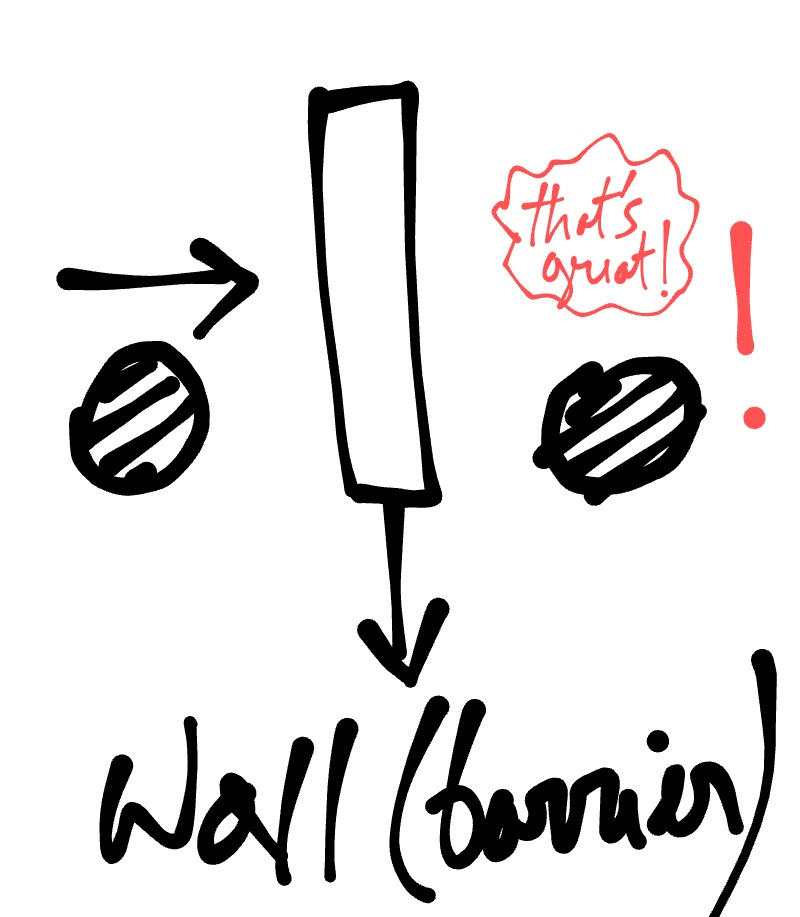 that's
great!
!
Wall (barrier)